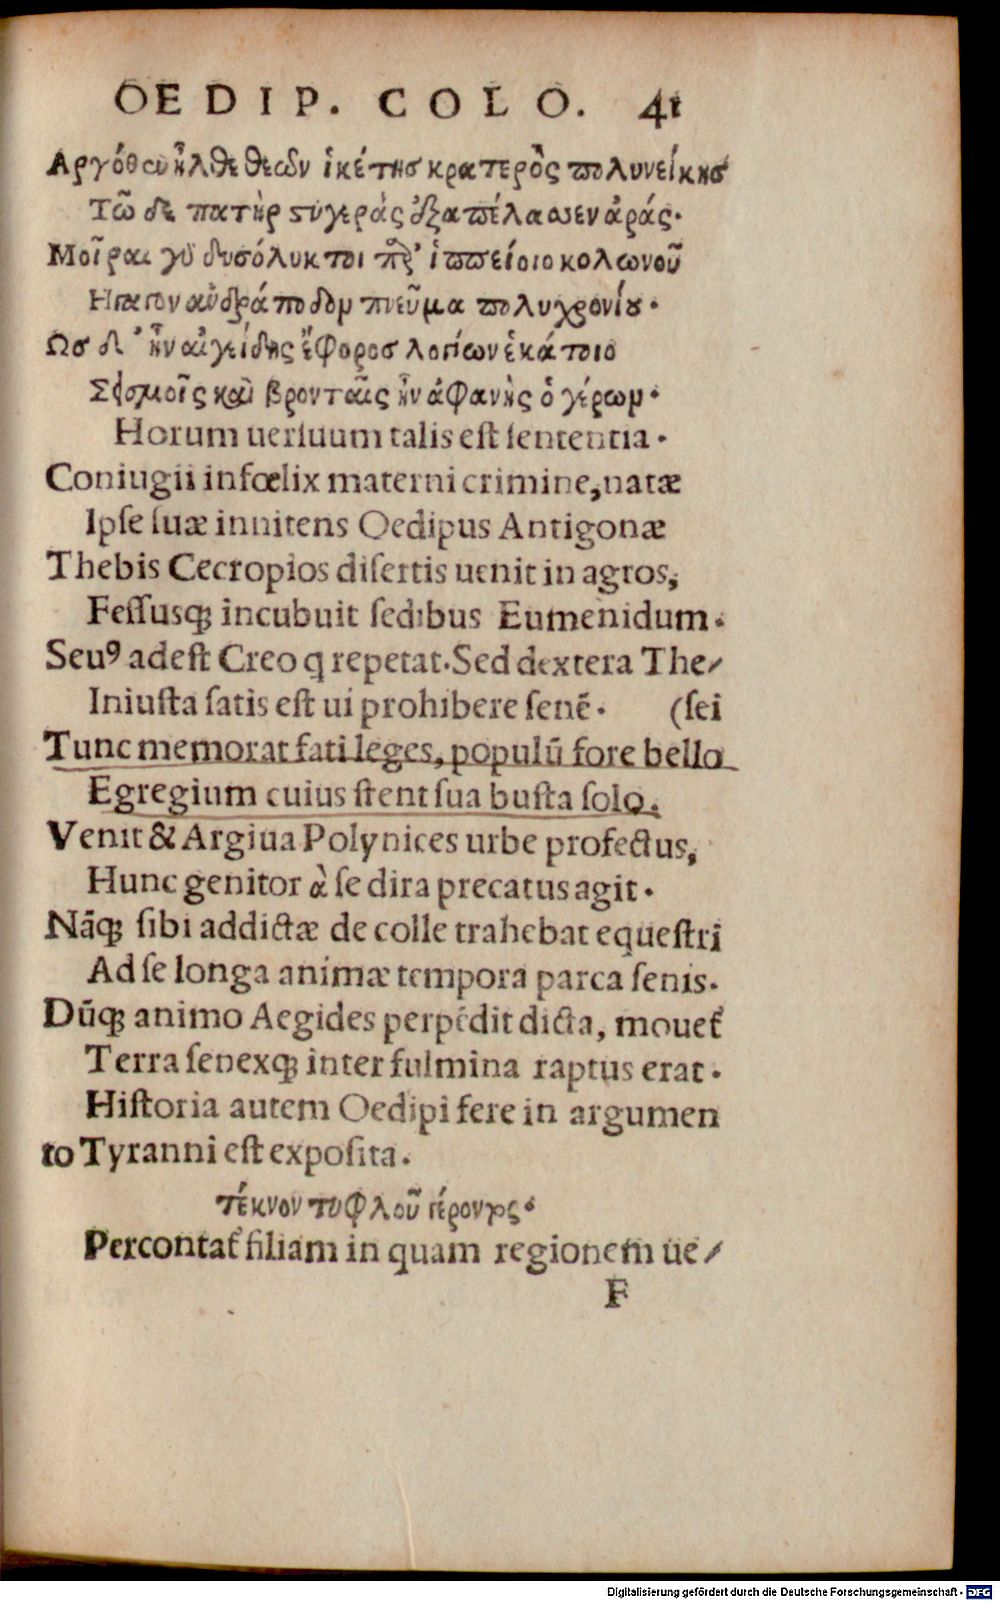 OEDIP. COLO. 41
Αργόθεν ἦλθε θεῶν ἱκέτης κρατερὸς πολυνείκης
Τῶ δὲ πατὴρ στυγερὰς ἐξαπέλασεν ἀράς.
Μοῖραι γὸ δυσόλυκτοι ἱππείοιο κολωνοῦ
πνεῦμα πολυχρονίου.
Ως δ' ἦν αἰγείδης ἔφορος λογίων ἑκάτοιο
Σεισμοῖς καὶ βρονταῖς ἦν ἀφανὴς ὁ γέρων.
Horum uersuum talis est sententia.
Coniugii infœlix materni crimine, natæ
Ipse suæ innitens Oedipus Antigonæ
Thebis Cecropios disertis uenit in agros,
Fessusq; incubuit sedibus Eumenidum.
Seuꝰ adest Creo q repetat. Sed dextera The/
Iniusta satis est ui prohibere senē. (sei
Tunc memorat fati leges, populū fore bello
Egregium cuius stent sua busta solo.
Venit & Argiua Polynices urbe profectus,
Hunc genitor à se dira precatus agit.
Nāq; sibi addictæ de colle trahebat equestri
Ad se longa animæ tempora parca senis.
Dūq; animo Aegides perpēdit dicta, mouet᷑
Terra senexq; inter fulmina raptus erat.
Historia autem Oedipi fere in argumen
to Tyranni est exposita.
τέκνον τυφλοῦ γέροντος.
Percontat᷑ filiam in quam regionem ue/
F
Digitalisierung gefördert durch die Deutsche Forschungsgemeinschaft - DFG